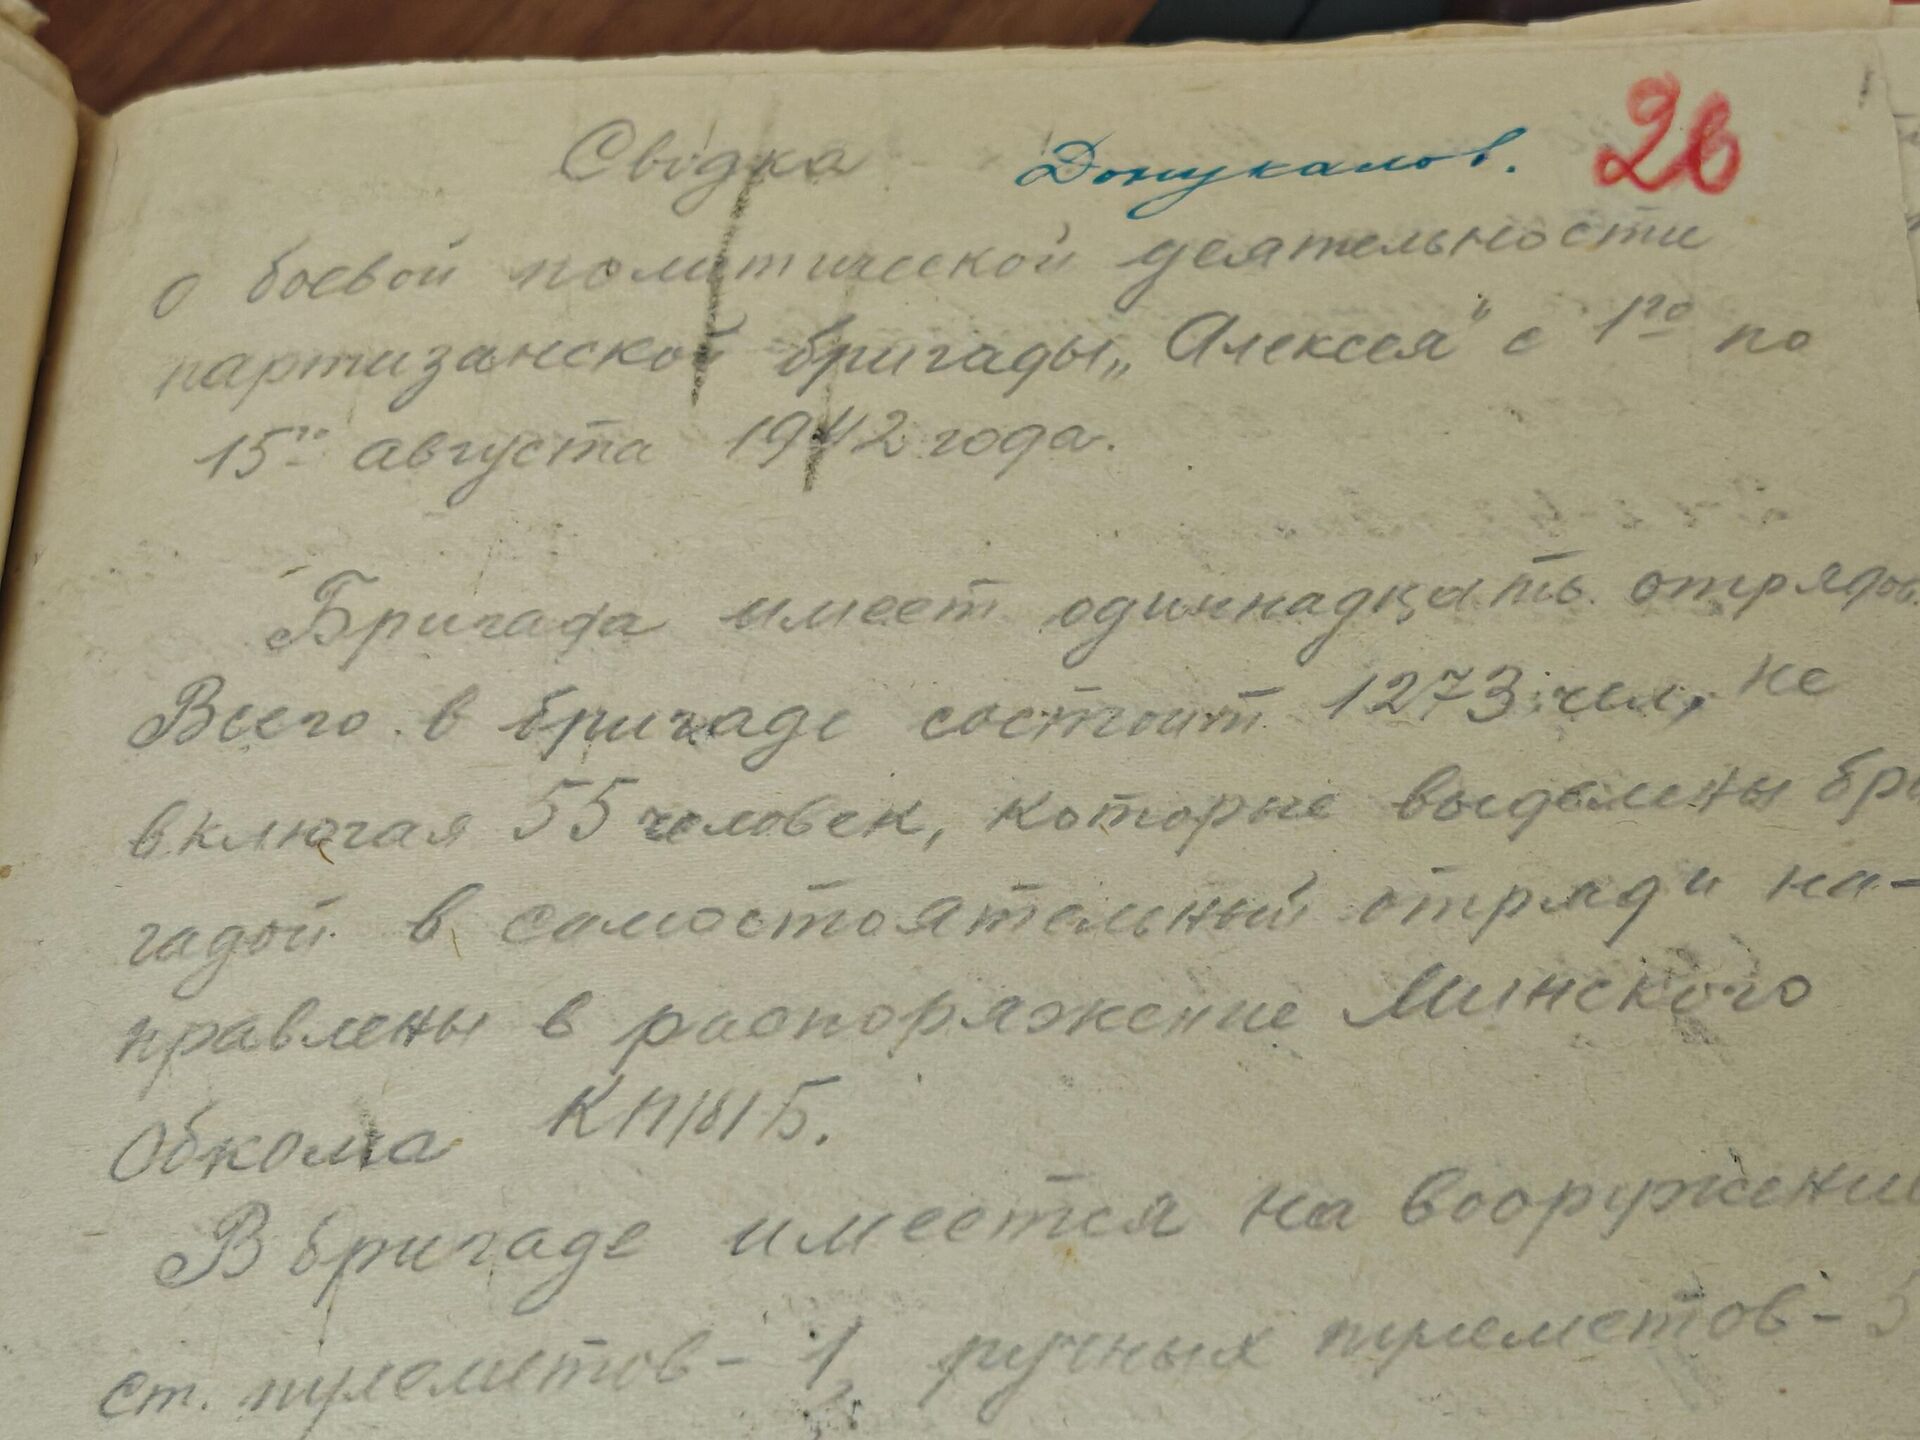 Сводка Данукалов. 26
о боевой политической деятельности
партизанской бригады „Алексея" с 1го по
15го августа 1942 года.
Бригада имеет одиннадцать отрядов.
Всего в бригаде состоит 1273 чел, не
включая 55 человек, которые выделены бри
гадой в самостоятельный отряд и на-
правлены в распоряжение Минского
Обкома КП/б/Б.
В бригаде имеется на вооружении
ст. пулеметов - 1, ручных пулеметов -